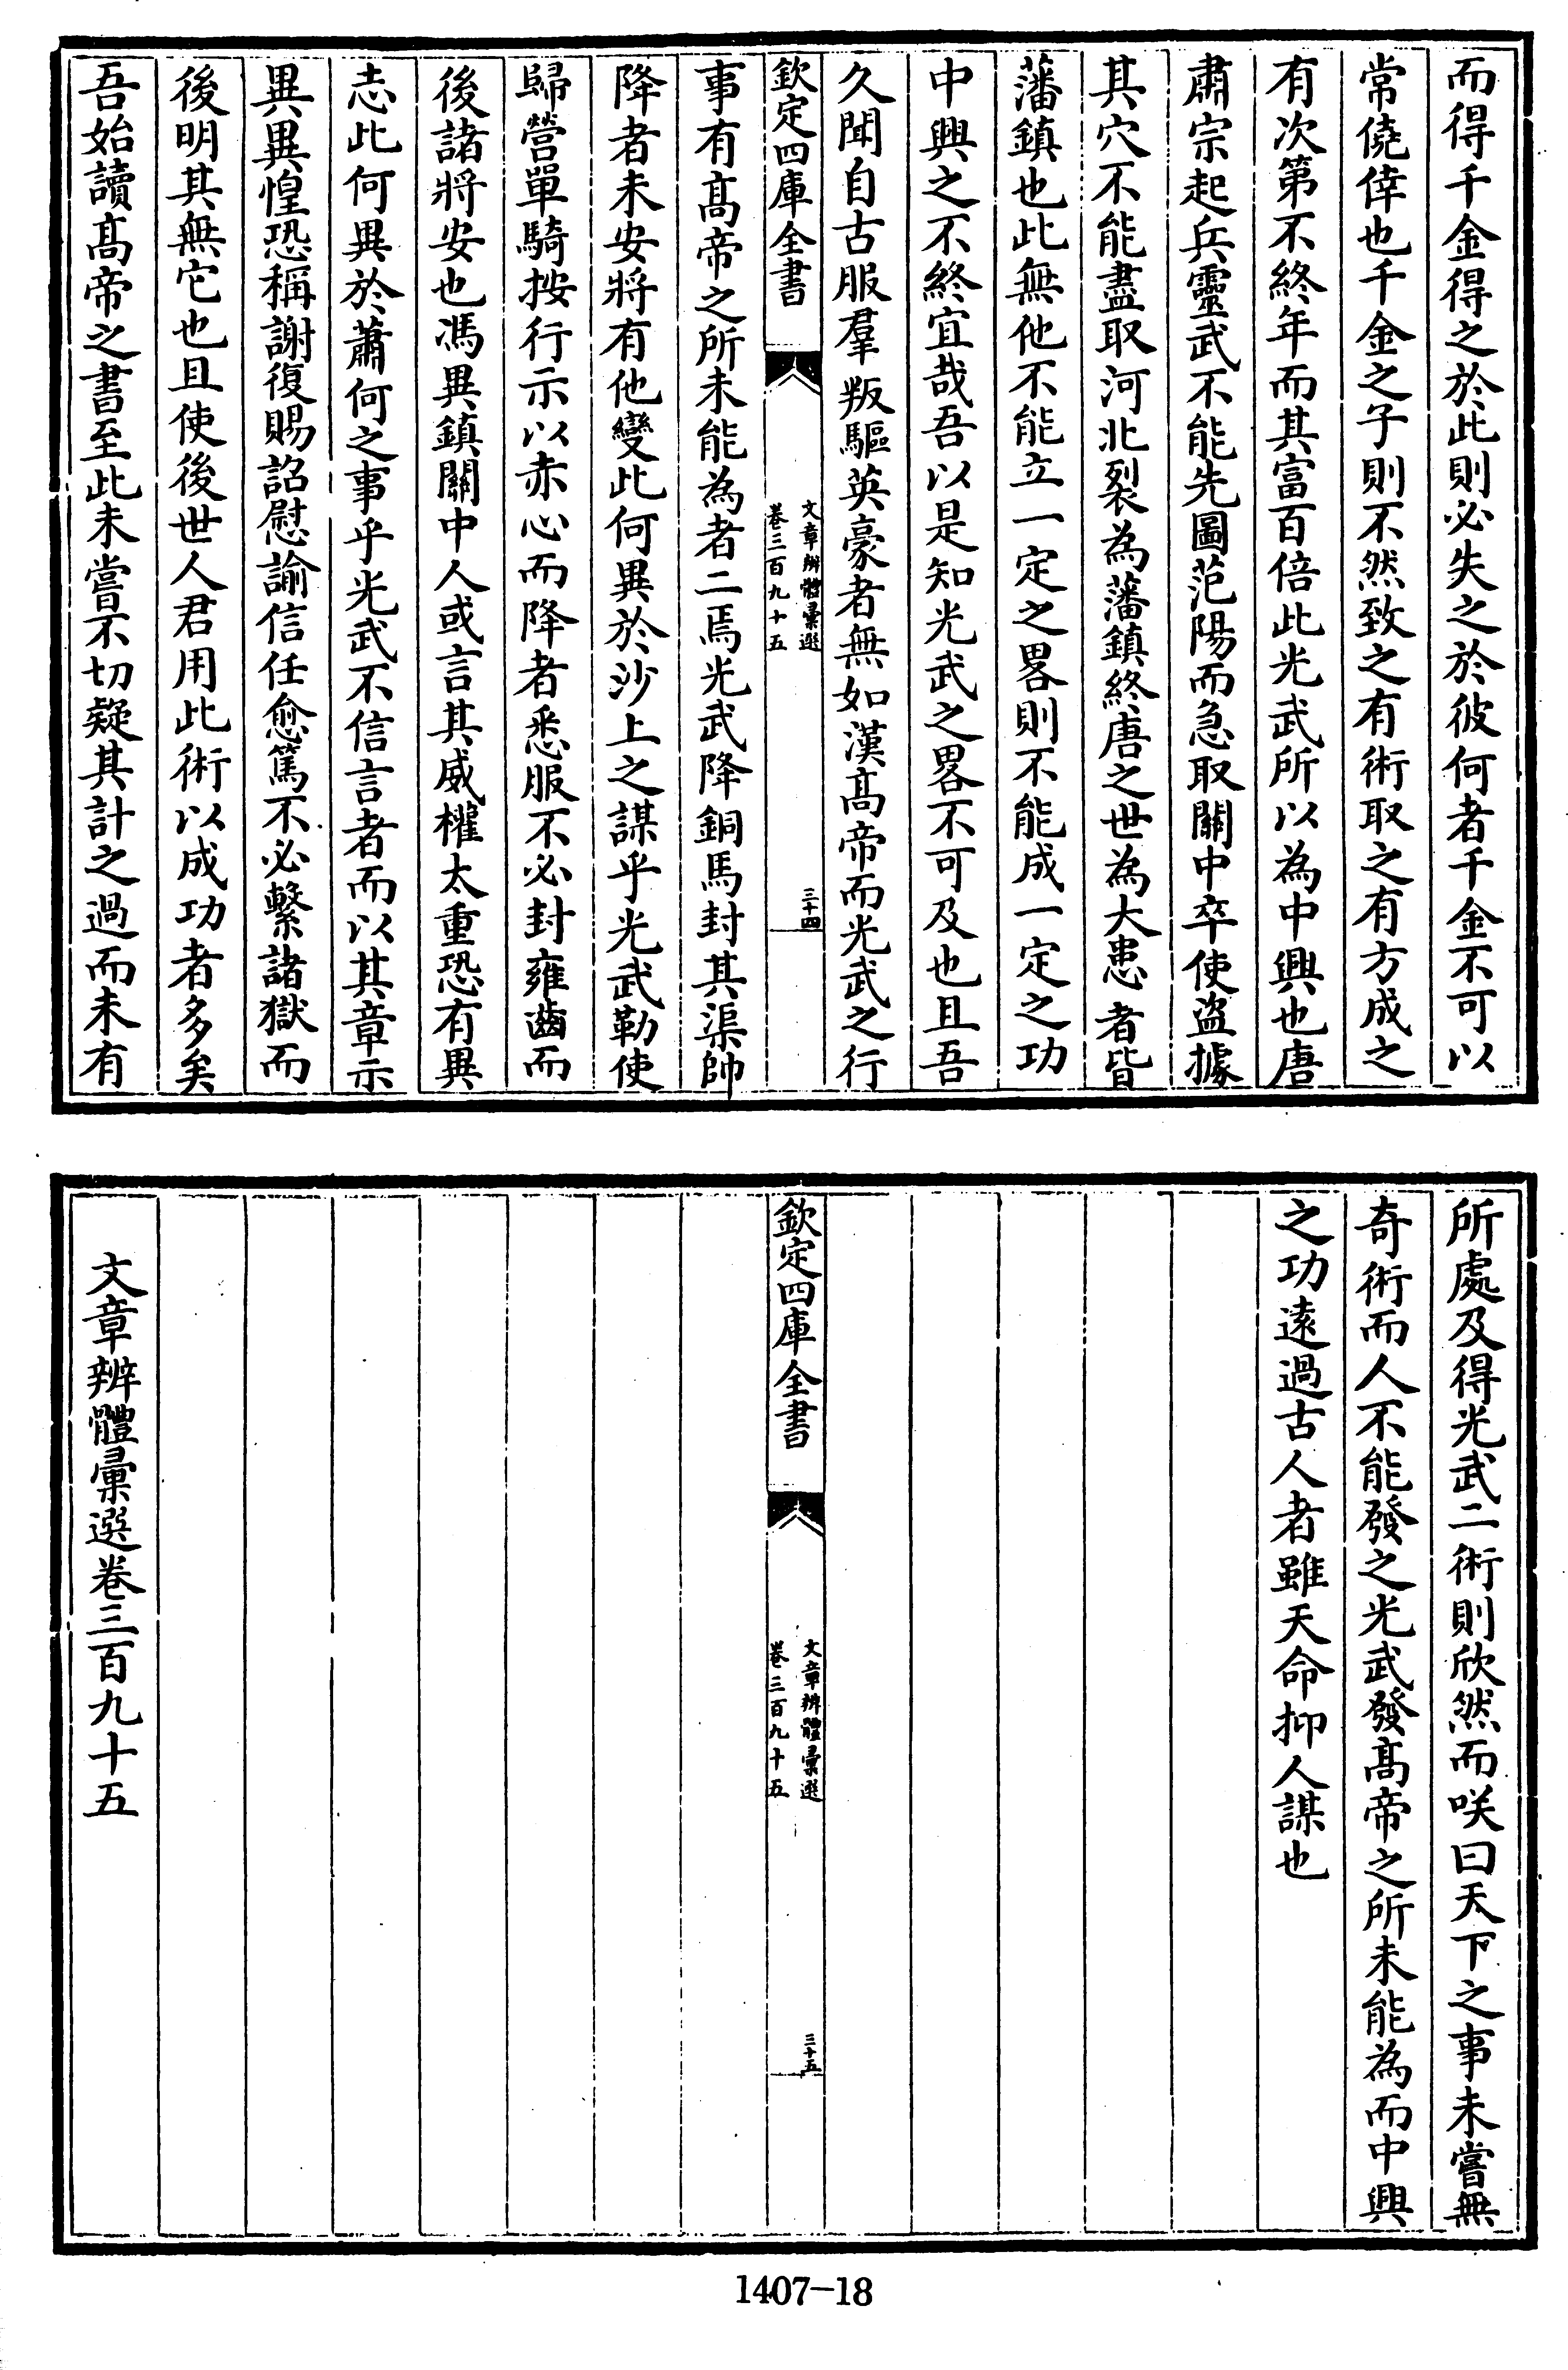 而得千金得之於此則必失之於彼何者千金不可以
常僥倖也千金之子則不然致之有術取之有方成之
有次第不終年而其富百倍此光武所以為中興也唐
肅宗起兵靈武不能先圖范陽而急取關中卒使盜據
其穴不能盡取河北裂為藩鎮終唐之世為大患者皆
藩鎮也此無他不能立一定之畧則不能成一定之功
中興之不終宜哉吾以是知光武之畧不可及也且吾
久聞自古服羣叛驅英豪者無如漢髙帝而光武之行
欽定四庫全書
文章辨體彙選
卷三百九十五
三十四
事有髙帝之所未能為者二焉光武降銅馬封其渠帥
降者未安將有他變此何異於沙上之謀乎光武勒使
歸營單騎按行示以赤心而降者悉服不必封雍齒而
後諸將安也馮異鎮關中人或言其威權太重恐有異
志此何異於蕭何之事乎光武不信言者而以其章示
異異惶恐稱謝復賜詔慰諭信任愈篤不必繫諸獄而
後明其無它也且使後世人君用此術以成功者多矣
吾始讀髙帝之書至此未嘗不切疑其計之過而未有
所處及得光武二術則欣然而咲曰天下之事未嘗無
奇術而人不能發之光武發髙帝之所未能為而中興
之功遠過古人者雖天命抑人謀也
欽定四庫全書
文章辨體彙選
卷三百九十五
三十五
文章辨體彙選卷三百九十五
1407-18